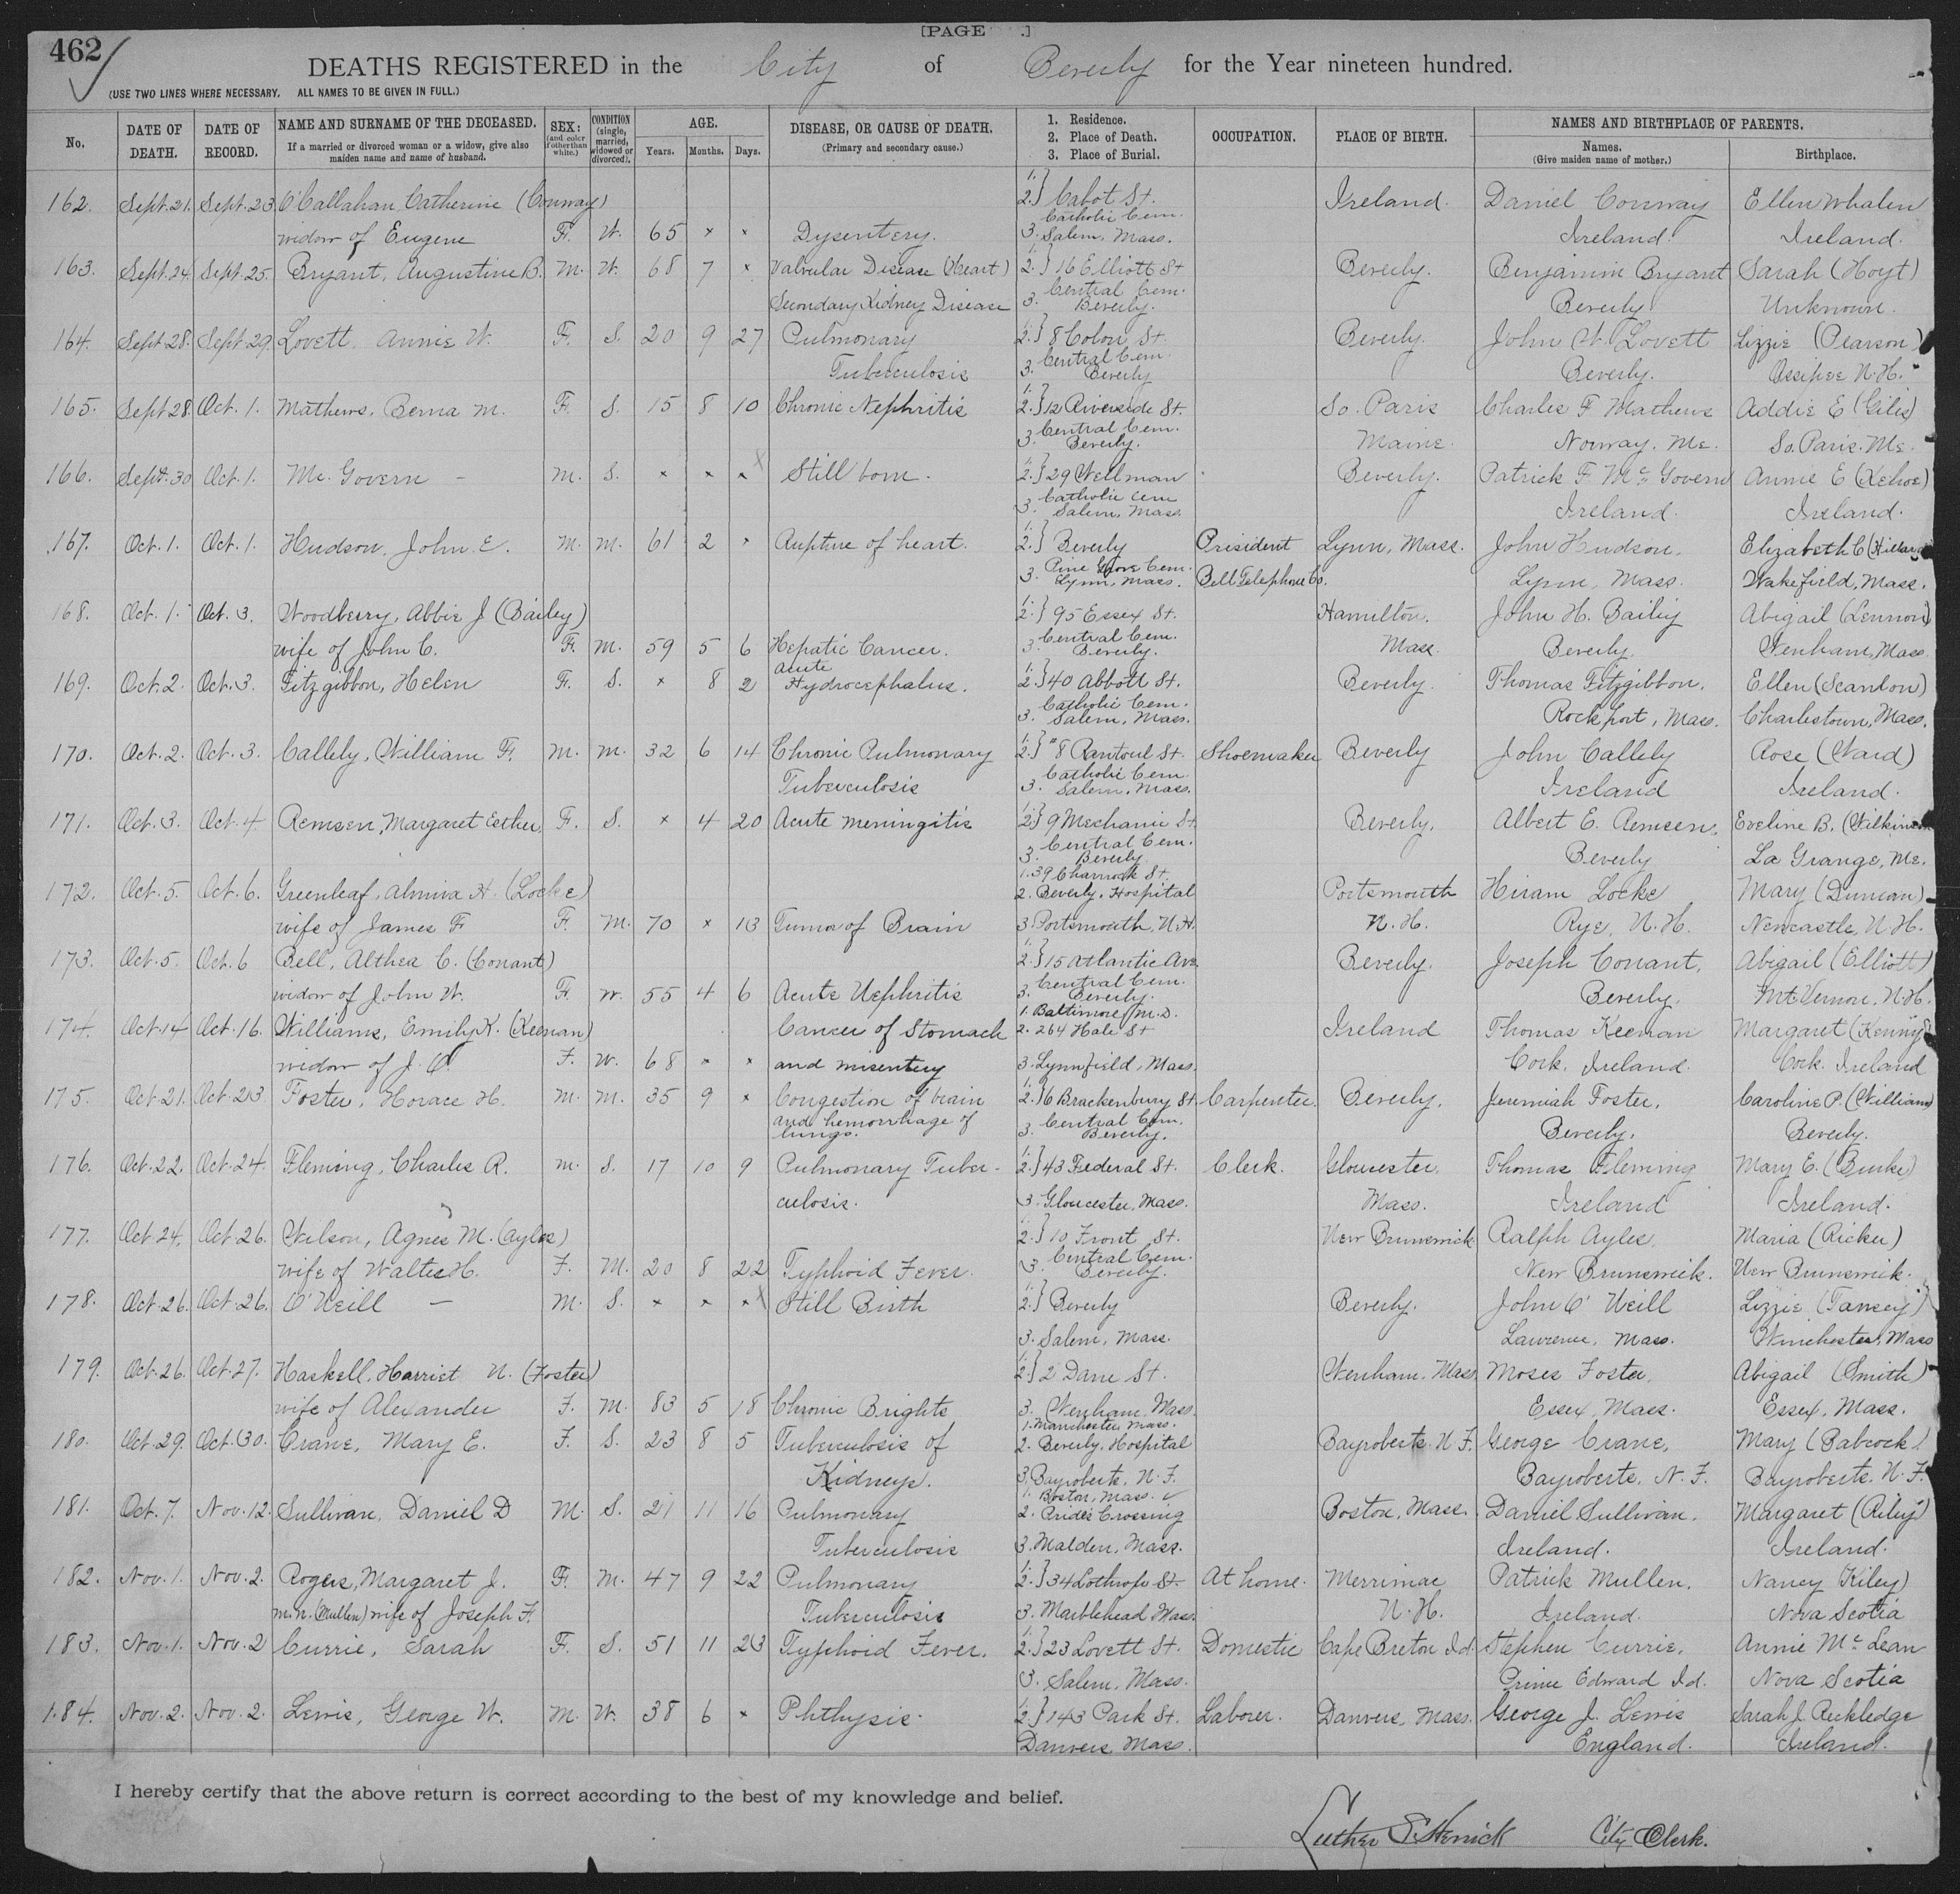 462
[PAGE .]
DEATHS REGISTERED in the City of Beverly for the Year nineteen hundred.
(USE TWO LINES WHERE NECESSARY. ALL NAMES TO BE GIVEN IN FULL.)
No. DATE OF DEATH. DATE OF RECORD. NAME AND SURNAME OF THE DECEASED. If a married or divorced woman or a widow, give also maiden name and name of husband. SEX: (and color if other than white.) CONDITION (single, married, widowed or divorced). AGE. Years. Months. Days. DISEASE, OR CAUSE OF DEATH. (Primary and secondary cause.) 1. Residence. 2. Place of Death. 3. Place of Burial. OCCUPATION. PLACE OF BIRTH. NAMES AND BIRTHPLACE OF PARENTS. Names. (Give maiden name of mother.) Birthplace.
162. Sept. 21. Sept. 23 O'Callahan Catherine (Conway) 1. 2. } Cabot St. Ireland. Daniel Conway Ellen Whalen
widow of Eugene F. W. 65 × × Dysentery. 3. Catholic Cem. Salem, Mass. Ireland. Ireland.
163. Sept. 24 Sept. 25. Bryant, Augustine B. M. W. 68 7 × Valvular Disease (Heart) 1. 2. } 16 Elliott St Beverly. Benjamin Bryant Sarah (Hoyt)
Secondary Kidney Disease 3. Central Cem. Beverly. Beverly Unknown.
164. Sept. 28. Sept. 29. Lovett, Annie W. F. S. 20 9 27 Pulmonary 1. 2. } 8 Colon St. Beverly. John W. Lovett Lizzie (Pearson)
Tuberculosis 3. Central Cem. Beverly Beverly. Ossipee N.H.
165. Sept 28. Oct. 1. Mathews, Berna M. F. S. 15 8 10 Chronic Nephritis 1. 2. } 12 Riverside St. So. Paris Charles F Mathews Addie E (Giles)
3. Central Cem. Beverly. Maine. Norway, Me. So. Paris. Me.
166. Sept. 30 Oct. 1. Mc. Govern – M. S. × × × Still born. 1. 2. } 29 Wellman Beverly. Patrick F. Mc Govern Annie E (Kehoe)
3. Catholic Cem Salem, Mass Ireland. Ireland.
167. Oct. 1. Oct. 1. Hudson, John E. M. M. 61 2 × Rupture of heart. 1. 2. } Beverly President Lynn, Mass. John Hudson. Elizabeth C
3. Pine Grove Cem. Lynn, Mass. Bell Telephone Co. Lynn, Mass. Wakefield, Mass.
168. Oct. 1. Oct. 3. Woodberry, Abbie J (Bailey) 1. 2. } 95 Essex St. Hamilton. John H. Bailey Abigail (Lennon)
wife of John C. F. M. 59 5 6 Hepatic Cancer. 3. Central Cem. Beverly. Mass. Beverly Wenham, Mass.
169. Oct. 2. Oct. 3. Fitzgibbon, Helen F. S. × 8 2 acute Hydrocephalus. 1. 2. } 40 Abbott St. Beverly. Thomas Fitzgibbon. Ellen (Scanlon)
3. Catholic Cem. Salem, Mass. Rockport, Mass. Charlestown, Mass.
170. Oct. 2. Oct. 3. Callely, William F. M. M. 32 6 14 Chronic Pulmonary 1. 2. } "8 Rantoul St. Shoemaker Beverly John Callely Rose (Ward)
Tuberculosis 3. Catholic Cem. Salem, Mass. Ireland Ireland.
171. Oct. 3. Oct. 4 Remsen, Margaret Esther. F. S. × 4 20 Acute meningitis 1. 2. } 9 Mechanic St. Beverly. Albert E. Remsen. Eveline B. (Wilkinson
3. Central Cem. Beverly Beverly La Grange, Me.
172. Oct. 5. Oct. 6. Greenleaf, Almira H. (Locke) 1. 39 Charnock St. 2. Beverly, Hospital Portsmouth Hiram Locke Mary (Duncan)
wife of James F F. M. 70 × 13 Tumor of Brain 3. Portsmouth, N.H. N.H. Rye, N.H. Newcastle, N.H.
173. Oct. 5. Oct. 6 Bell, Althea C. (Conant) 1. 2. } 15 Atlantic Ave Beverly. Joseph Conant. Abigail (Elliott)
widow of John W. F. W. 55 4 6 Acute Nephritis 3. Central Cem. Beverly. Beverly. Mt Vernon, N.H.
174. Oct. 14 Oct. 16. Williams, Emily K. (Keenan) Cancer of Stomach 1. Baltimore, M.D. 2. 264 Hale St Ireland Thomas Keenan Margaret (Kenny)
widow of J. O F. W. 68 × × and misentery 3. Lynnfield, Mass. Cork, Ireland. Cork. Ireland
175. Oct. 21. Oct. 23 Foster, Horace H. M. M. 35 9 × Congestion of brain 1. 2. } 6 Brackenbury St. Carpenter. Beverly. Jeremiah Foster. Caroline P. (Williams)
and hemorrhage of lungs. 3. Central Cem. Beverly. Beverly. Beverly.
176. Oct. 22. Oct. 24. Fleming, Charles R. M. S. 17 10 9 Pulmonary Tuber- 1. 2. } 43 Federal St. Clerk. Gloucester. Thomas Fleming Mary E. (Burke)
culosis. 3. Gloucester, Mass. Mass. Ireland Ireland.
177. Oct. 24. Oct. 26. Wilson, Agnes M. (Ayles) 1. 2. } 10 Front St. New Brunswick. Ralph Ayles. Maria (Ricker)
wife of Walter H. F. M. 20 8 22 Typhoid Fever. 3. Central Cem. Beverly. New Brunswick. New Brunswick.
178. Oct. 26. Oct. 26. O'Neill — M. S. × × × Still Birth 1. 2. } Beverly Beverly. John O'Neill Lizzie (Tansey)
3. Salem, Mass. Lawrence, Mass. Winchester, Mass
179. Oct. 26. Oct. 27. Haskell, Harriet N. (Foster) 1. 2. } 2 Dane St. Wenham, Mass. Moses Foster. Abigail (Smith)
wife of Alexander F. M. 83 5 18 Chronic Brights 3. Wenham, Mass. Essex, Mass. Essex, Mass.
180. Oct. 29. Oct. 30. Crane, Mary E. F. S. 23 8 5 Tuberculosis of 1. Manchester, Mass. 2. Beverly, Hospital Bayroberts. N.F. George Crane. Mary (Babcock)
Kidneys. 3. Bayroberts, N.F. Bayroberts, N.F. Bayroberts. N.F.
181. Oct. 7. Nov. 12. Sullivan, Daniel D M. S. 21 11 16 Pulmonary 1. Boston, Mass. 2. Prides Crossing Boston, Mass. Daniel Sullivan. Margaret (Riley)
Tuberculosis 3. Malden, Mass. Ireland. Ireland.
182. Nov. 1. Nov. 2. Rogers, Margaret J. F. M. 47 9 22 Pulmonary 1. 2. } 34 Lothrop St. At home. Merrimac Patrick Mullen. Nancy (Kiley)
m.n. (Mullen) wife of Joseph F. Tuberculosis 3. Marblehead Mass. N.H. Ireland. Nova Scotia
183. Nov. 1. Nov. 2 Currie, Sarah F. S. 51 11 23 Typhoid Fever. 1. 2. } 23 Lovett St. Domestic Cape Breton Id. Stephen Currie. Annie Mc Lean
3. Salem, Mass. Prince Edward Id. Nova Scotia
184. Nov. 2. Nov. 2. Lewis, George W. M. W. 38 6 × Phthysis. 1. 2. } 143 Park St. Laborer. Danvers, Mass. George J. Lewis Sarah J. Rickledge
Danvers Mass. England. Ireland.
I hereby certify that the above return is correct according to the best of my knowledge and belief.
Luther S. Herrick City Clerk.